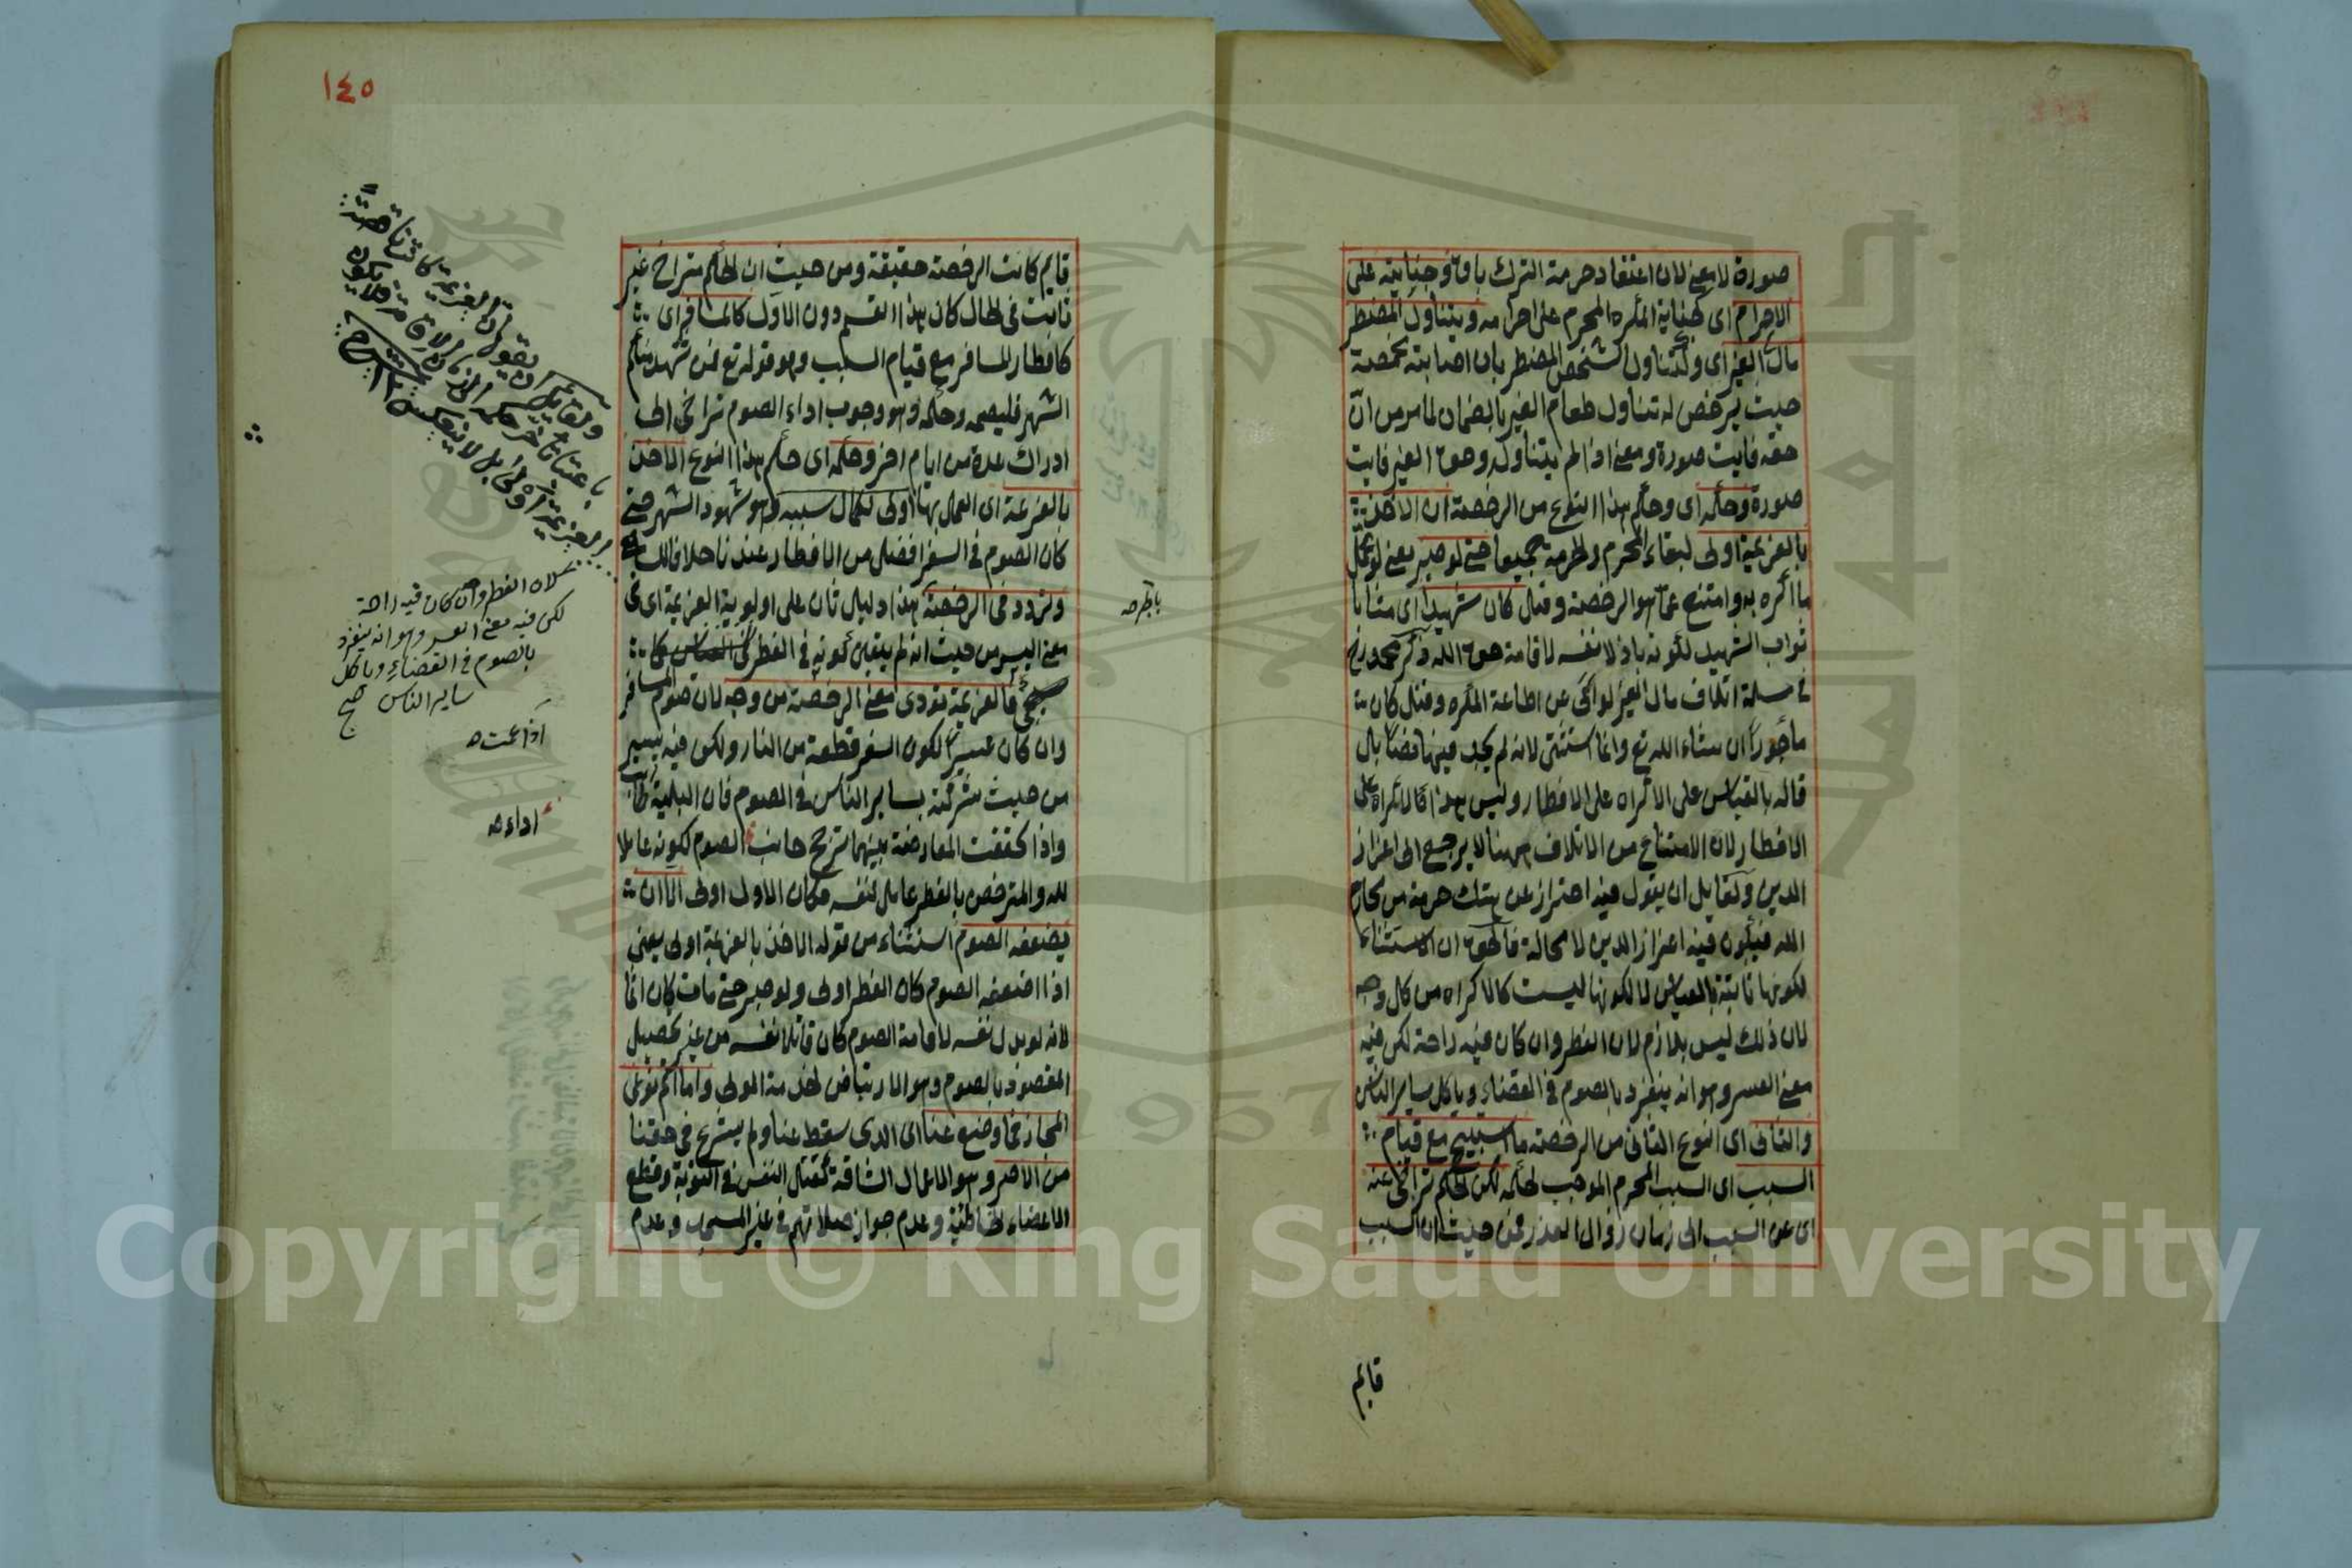 صورة لا معنى لان اعتقاد حرمة الترك باق وجنايته على
الاحرام اى كجناية المكره المحرم على احرامه وبتناول المضطر
مال الغير اى وكتناول الشخص المضطر بان اصابته مخمصة
حيث يرخص له تناول طعام الغير بالضمان لما مر من ان
حقه فايت صورة ومعنى اذا لم يتناول وحق الغير فايت
صورة وحكمه اى وحكم هذا النوع من الرخصة ان الاخذ
بالعزيمة اولى لبقاء المحرم والحرمة جميعا حتى لو صبر يعنى لو تحمل
ما اكره به وامتنع عما هو الرخصة وقتل كان شهيدا اى مثابا
ثواب الشهيد لكونه باذلا نفسه لاقامة حق الله وذكر محمد رح
فى مسئلة اتلاف مال الغير لو ابى عن اطاعة المكره وقتل كان
مأجورا ان شاء الله تع وانما استثنى لانه لم يجد فيها نصا بال
قاله بالقياس على الاكراه على الافطار وليس هذا كالاكراه على
الافطار لان الامتناع من الاتلاف ههنا لا يرجع الى اعزاز
الدين ولقايل ان يقول فيه احتراز عن هتك حرمة من محارم
الله فيكون فيه اعزاز الدين لا محالة فالحق ان الاستثناء
لكونها ثابتة بالقياس لا لكونها ليست كالاكراه من كل وجه
لان ذلك ليس بلازم لان الفطر وان كان فيه راحة لكن فيه
معنى العسر وهو انه ينفرد بالصوم فى القضاء وياكل ساير الناس
والثانى اى النوع الثانى من الرخصة ما استبيح مع قيام
السبب اى السبب المحرم الموجب لحكمه لكن الحكم تراخى عنه
اى عن السبب الى زمان زوال العذر فمن حيث ان السبب
قايم
١٤٥
قايم كانت الرخصة حقيقة ومن حيث ان الحكم متراخ غير
ثابت فى الحال كان هذا القسم دون الاول كالمسافر اى
كافطار المسافر مع قيام السبب وهو قوله تع فمن شهد منكم
الشهر فليصمه وحكمه وهو وجوب اداء الصوم تراخى الى
ادراك عدة من ايام اخر وحكمه اى حكم هذا النوع الاخذ
بالعزيمة اى العمل بها اولى لكمال سببه وهو شهود الشهر حتى
كان الصوم فى السفر افضل من الافطار عندنا خلافا للشافعى
وتردد فى الرخصة هذا دليل ثان على اولوية العزيمة اى فى
معنى اليسر من حيث انه لم يتعين كونه فى الفطر كما
سيجئ فالعزيمة تؤدى معنى الرخصة من وجه لان صوم المسافر
وان كان عسيرا لكون السفر قطعة من النار ولكن فيه يسير
من حيث شركته بساير الناس فى الصوم فان البلية اذا عمت طابت
واذا تحققت المعارضة بينهما ترجح جانب الصوم لكونه عاملا
لله والمترخص بالفطر عامل لنفسه فكان الاول اولى الا ان
يضعفه الصوم استثناء من قوله الاخذ بالعزيمة اولى يعنى
اذا اضعفه الصوم كان الفطر اولى ولو صبر حتى مات كان اثما
لانه لو بدل نفسه لاقامة الصوم كان قاتلا نفسه من غير تحصيل
المقصود بالصوم وهو الارتياض لخدمة المولى واما اتم نوعى
المجاز فما وضع عنا اى الذى سقط عنا ولم يشرع فى حقنا
من الاصر وهو الاعمال الشاقة كقتل النفس فى التوبة وقطع
الاعضاء الخاطئة وعدم جواز صلاتهم فى غير المسجد وعدم
ولقائل ان يقول ان العزيمة كانت ناقصة
باعتبار تأخر حكمه
العزيمة اولى بل لا ينعكس
لان الفطر وان كان فيه راحة
لكن فيه معنى العسر وهو انه ينفرد
بالصوم فى القضاء وياكل
ساير الناس صح
اذا عمت
اداء